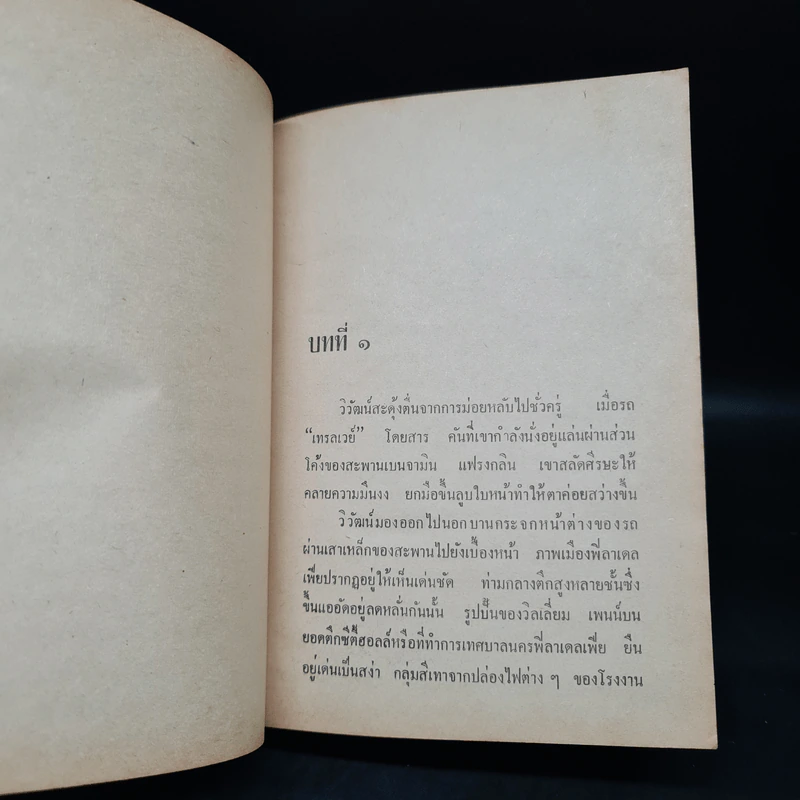 บทที่ ๑
วิวัฒน์สะดุ้งตื่นจากการม่อยหลับไปชั่วครู่ เมื่อรถ
“เทรลเวย์” โดยสาร คันที่เขากำลังนั่งอยู่แล่นผ่านส่วน
โค้งของสะพานเบนจามิน แฟรงกลิน เขาสลัดศีรษะให้
คลายความมึนงง ยกมือขึ้นลูบใบหน้าทำให้ตาค่อยสว่างขึ้น
วิวัฒน์มองออกไปนอกบานกระจกหน้าต่างของรถ
ผ่านเสาเหล็กของสะพานไปยังเบื้องหน้า ภาพเมืองฟิลาเดล
เฟียปรากฏอยู่ให้เห็นเด่นชัด ท่ามกลางตึกสูงหลายชั้นซึ่ง
ขึ้นแออัดอยู่ลดหลั่นกันนั้น รูปปั้นของวิลเลี่ยม เพนน์บน
ยอดตึกซิตี้ฮอลล์หรือที่ทำการเทศบาลนครฟิลาเดลเฟีย ยืน
อยู่เด่นเป็นสง่า กลุ่มสีเทาจากปล่องไฟต่าง ๆ ของโรงงาน